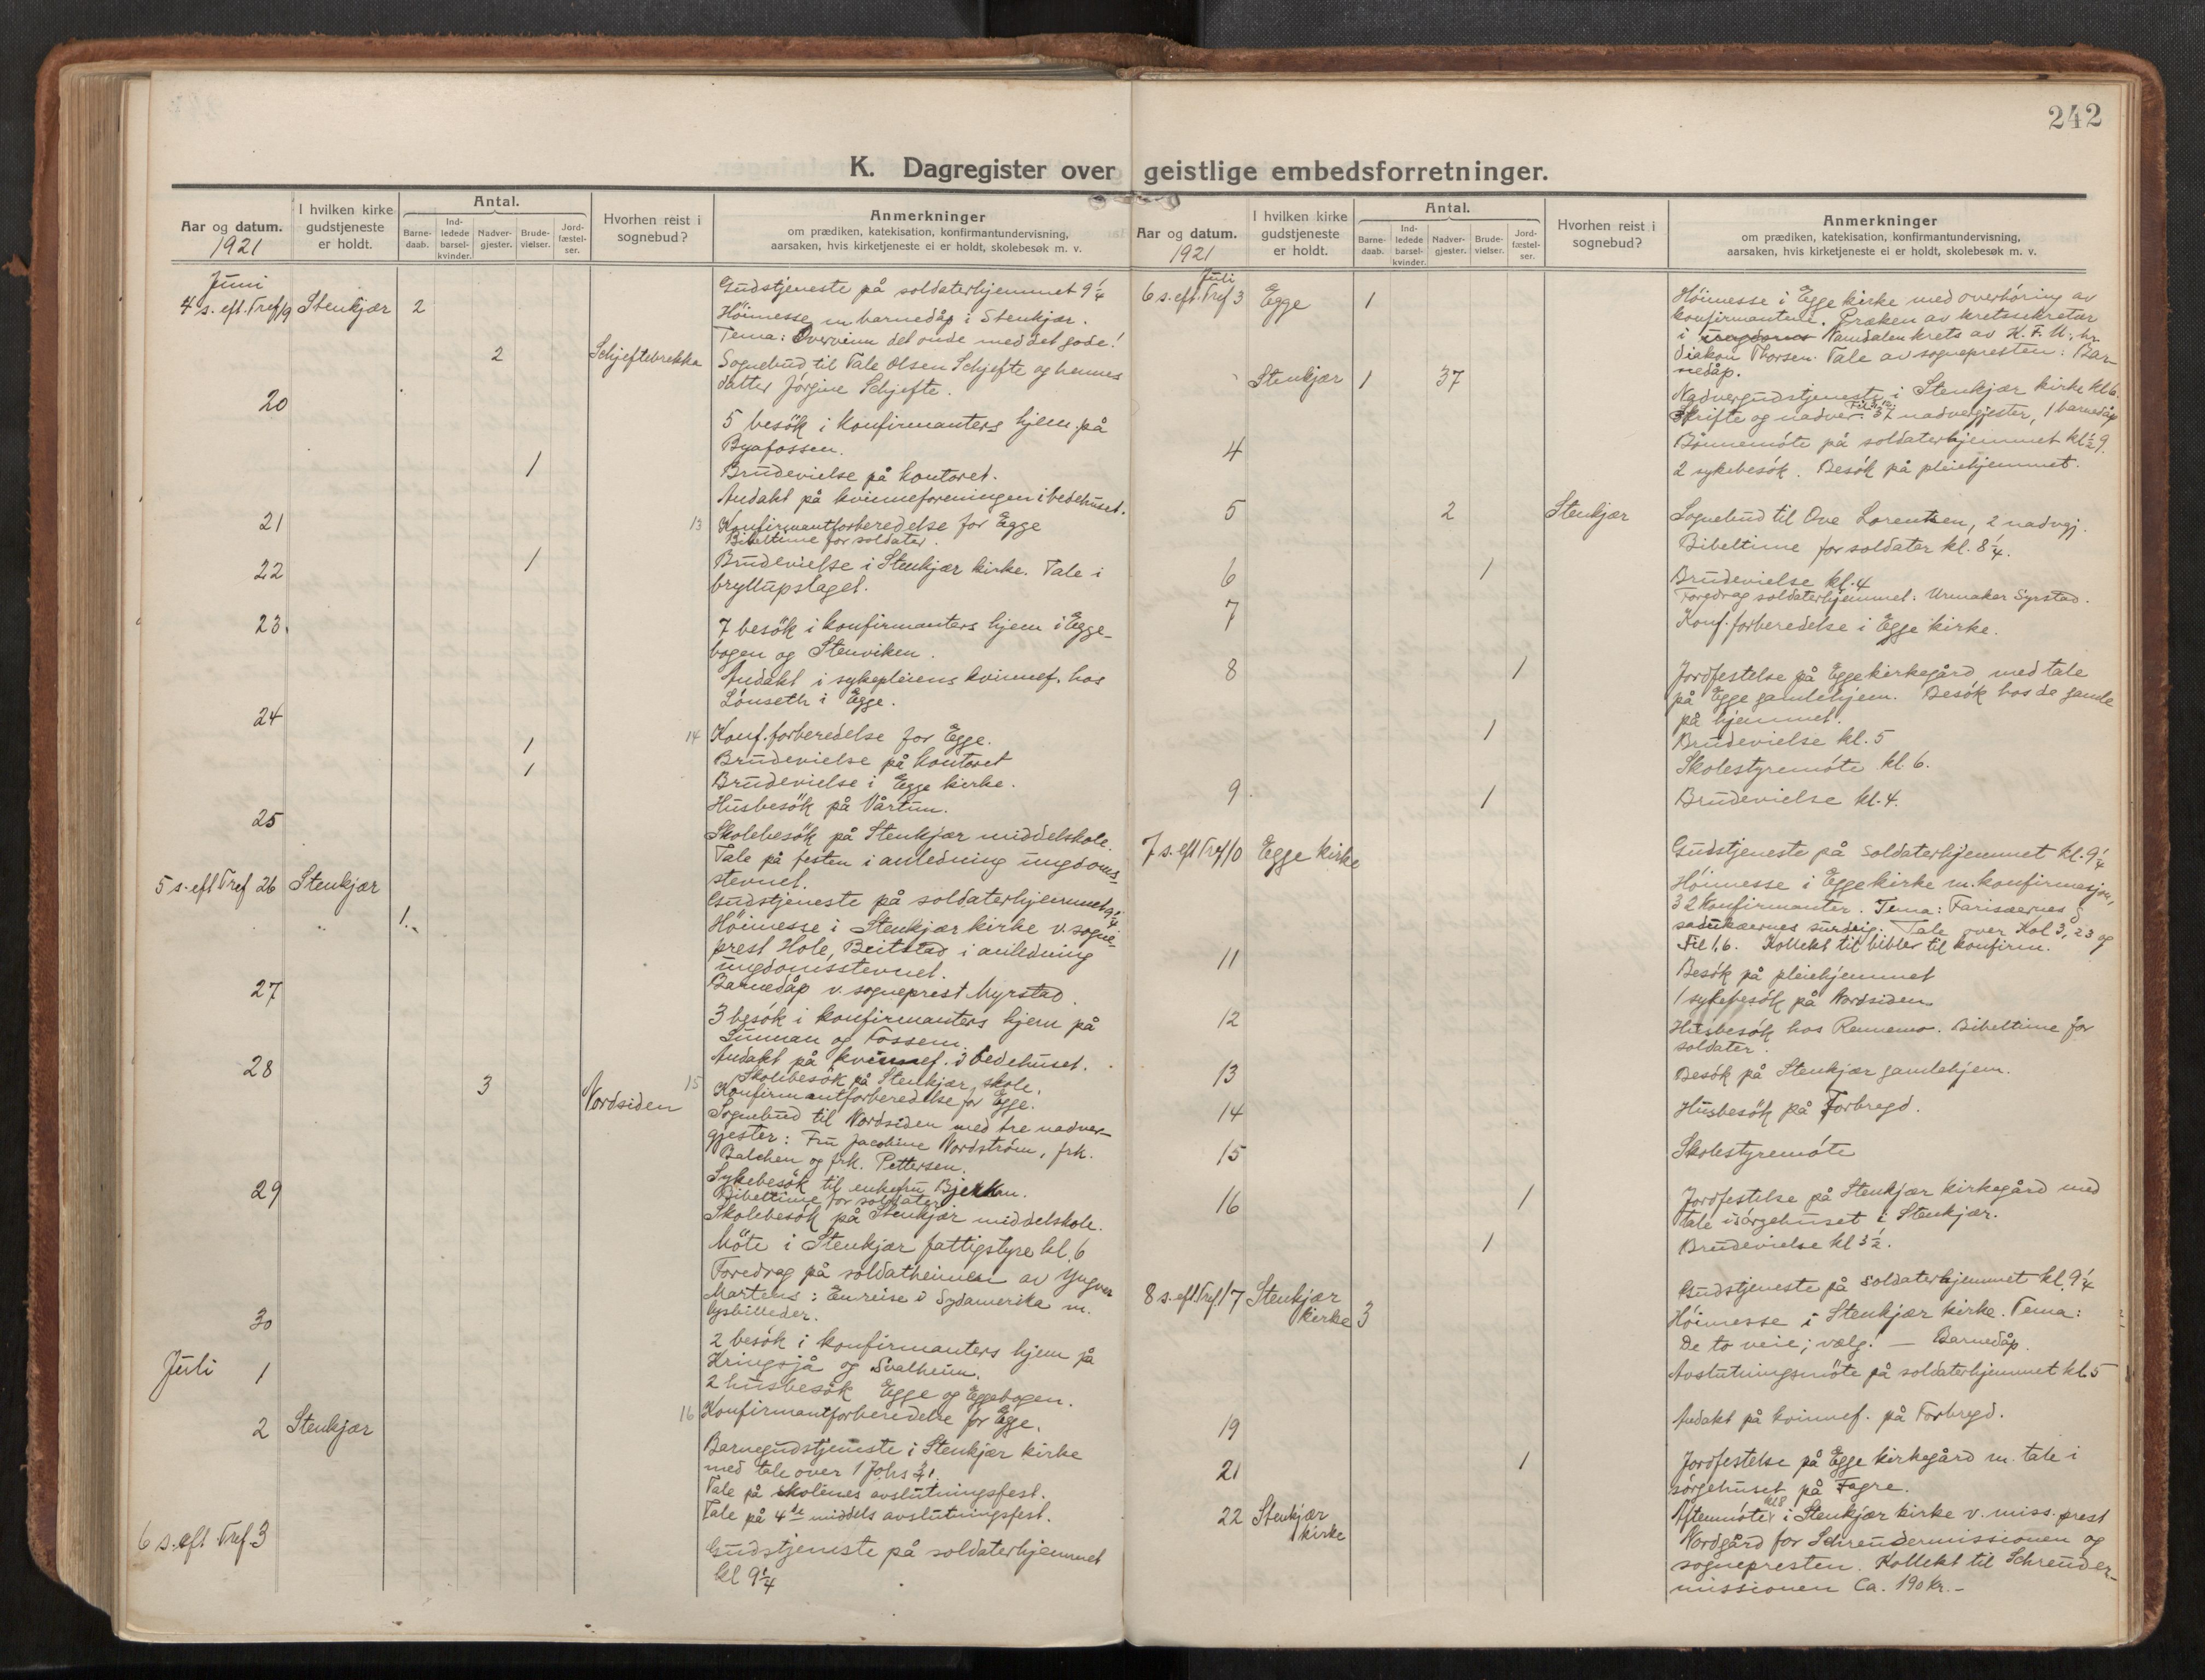 242
K. Dagregister over geistlige embedsforretninger.
Aar og datum.
1921
I hvilken kirke
gudstjeneste
er holdt.
Antal.
Barne-
daab.
Ind-
ledede
barsel-
kvinder.
Nadver-
gjester.
Brude-
vielser.
Jord-
fæstel-
ser.
Hvorhen reist i
sognebud?
Anmerkninger
om prædiken, katekisation, konfirmantundervisning,
aarsaken, hvis kirketjeneste ei er holdt, skolebesøk m. v.
Juni
4 s. eft. Tref 19 Stenkjær 2
Gudstjeneste på soldaterhjemmet 9 1/4
Höimesse m barnedåp i Stenkjær.
Tema: Overvinn det onde med det gode!
2 Schjeftebrekka
Sognebud til Tale Olsen Schjefte og hennes
datter Jørgine Schjefte.
20
5 besök i konfirmanters hjem på
Byafossen.
1 Brudevielse på kontoret.
Andakt på kvinneforeningen i bedehuset.
21 13 Konfirmantforberedelse for Egge
Bibeltime for soldater.
22 1 Brudevielse i Stenkjær kirke. Tale i
bryllupslaget.
23. 7 besök i konfirmanters hjem i Egge-
bogen og Stenviken.
Andakt i sykepleiens kvinnef. hos
Lønseth i Egge.
24 14 Konf. forberedelse for Egge.
1 Brudevielse på kontoret
1 Brudevielse i Egge kirke.
Husbesök på Vårtun.
25 Skolebesök på Stenkjær middelskole.
Tale på festen i anledning ungdoms-
stevnet.
5 s. eft Tref 26 Stenkjær
Gudstjeneste på soldaterhjemmet 9 1/4
1. Höimesse i Stenkjær kirke v. sogne-
prest Hole, Beitstad i anledning
ungdomsstevnet.
Barnedåp v. sogneprest Myrstad.
27 3 besök i konfirmanters hjem på
Sunnan og Fossem.
Andakt på kvinnef. i bedehuset.
28 Skolebesök på Stenkjær skole.
15 Konfirmantforberedelse for Egge.
3 Nordsiden Sognebud til Nordsiden med tre nadver-
gjester: Fru Jacobine Nordström, frk.
Balchen og frk. Pettersen.
Sykebesök til enkefru Bjerkan.
Bibeltime for soldater
29 Skolebesök på Stenkjær middelskole.
Möte i Stenkjær fattigstyre kl. 6
Foredrag på soldatheimen av Yngvar
Martens: En reise i Sydamerika m.
lysbilleder.
30 2 besök i konfirmanters hjem på
Kringsjå og Svalheim.
Juli 1 2 husbesök Egge og Eggebogen.
16 Konfirmantforberedelse for Egge.
2 Stenkjær
Barnegudstjeneste i Stenkjær kirke
med tale over 1 Johs
Tale på skolenes avslutningsfest.
Tale på 4de middels avslutningsfest.
6 s. eft Tref 3
Gudstjeneste på soldaterhjemmet
kl 9 1/4
Aar og datum.
1921
I hvilken kirke
gudstjeneste
er holdt.
Antal.
Barne-
daab.
Ind-
ledede
barsel-
kvinder.
Nadver-
gjester.
Brude-
vielser.
Jord-
fæstel-
ser.
Hvorhen reist i
sognebud?
Anmerkninger
om prædiken, katekisation, konfirmantundervisning,
aarsaken, hvis kirketjeneste ei er holdt, skolebesøk m. v.
Juli
6 s. eft. Tref 3 Egge 1
Höimesse i Egge kirke med overhöring av
konfirmantene. Præken av kretssekretær
i Namdalen krets av K. F. U., hr.
diakon Thorsen. Tale av sognepresten: Bar-
nedåp.
Stenkjær 1 37
Nadvergudstjeneste i Stenkjær kirke kl 6.
Skrifte og nadver. 37 nadvergjester, 1 barnedåp
Bönnemöte på soldaterhjemmet kl 1/2 9.
4 2 sykebesök. Besök på pleiehjemmet.
5 2 Stenkjær Sognebud til Ove Lorentsen, 2 nadvgj.
Bibeltime for soldater kl. 8 1/4.
6 1 Brudevielse kl. 4
Foredrag soldaterhjemmet: Urmaker Syrstad.
7 Konf. forberedelse i Egge kirke.
8 1 Jordfestelse på Egge kirkegård med tale
på Egge gamlehjem. Besök hos de gamle
på hjemmet.
1 Brudevielse kl. 5
Skolestyremöte kl 6.
9 1 Brudevielse kl. 4.
7 s. eft Tref 10 Egge kirke
Gudstjeneste på soldaterhjemmet kl. 9 1/4
Höimesse i Egge kirke m. konfirmasjon,
32 konfirmanter. Tema: Farisæernes &
sadukæernes surdeig. Tale over Kol 3, 23 og
Fil 1, 6. Kollekt til bibler til konfirm.
11 Besök på pleiehjemmet
1 sykebesök på Nordsiden.
12 Husbesök hos Rennemo. Bibeltime for
soldater.
13 Besök på Stenkjær gamlehjem.
14 Husbesök på Forbregd.
15 Skolestyremöte
16 1 Jordfestelse på Stenkjær kirkegård med
tale i sørgehuset i Stenkjær.
1 Brudevielse kl 3 1/2.
8 s. eft. Tref. 17 Stenkjær
kirke 3
Gudstjeneste på soldaterhjemmet kl. 9 1/4
Höimesse i Stenkjær kirke. Tema:
De to veie; vælg! — Barnedåp.
Avslutningsmöte på soldaterhjemmet kl. 5
19 Andakt på kvinnef. på Forbregd.
21 1 Jordfestelse på Egge kirkegård m. tale i
sørgehuset på Fagre.
22 Stenkjær
kirke
Aftenmöte kl 8 i Stenkjær kirke v. miss. prest
Nordgård for Schreudermissionen og
sognepresten. Kollekt til Schreuder-
missionen Ca. 190 kr.-